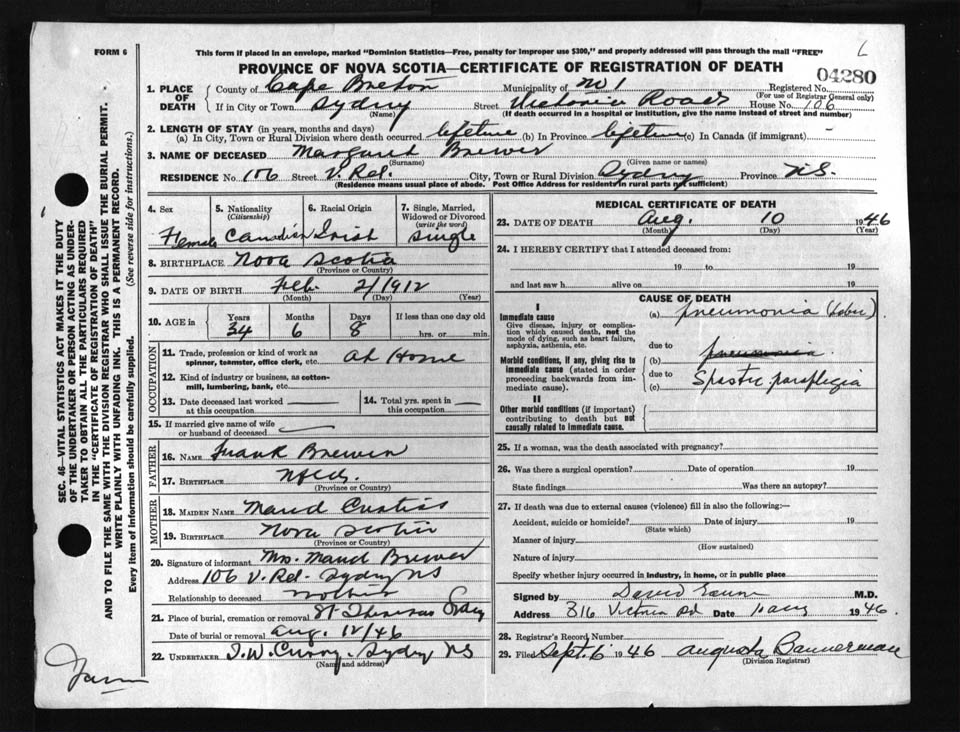 FORM 6
This form if placed in an envelope, marked "Dominion Statistics—Free, penalty for improper use $300," and properly addressed will pass through the mail "FREE"
L
PROVINCE OF NOVA SCOTIA—CERTIFICATE OF REGISTRATION OF DEATH
04280
1. PLACE OF DEATH
County of Cape Breton Municipality of No 1 Registered No.
(For use of Registrar General only)
If in City or Town Sydney Street Victoria Road House No. 106
(Name) (If death occurred in a hospital or institution, give the name instead of street and number)
2. LENGTH OF STAY (in years, months and days)
(a) In City, Town or Rural Division where death occurred lifetime (b) In Province lifetime (c) In Canada (if immigrant) -
3. NAME OF DECEASED Margaret Brewer
(Surname) (Given name or names)
RESIDENCE No. 106 Street V. Rd. City, Town or Rural Division Sydney Province N.S.
(Residence means usual place of abode. Post Office Address for residents in rural parts not sufficient)
4. Sex
Female
5. Nationality
(Citizenship)
Canadian
6. Racial Origin
Irish
7. Single, Married, Widowed or Divorced
(write the word)
Single
8. BIRTHPLACE Nova Scotia
(Province or Country)
9. DATE OF BIRTH Feb. 2/1912
(Month) (Day) (Year)
10. AGE in
Years Months Days If less than one day old
34 6 8 hrs. or min.
OCCUPATION
11. Trade, profession or kind of work as spinner, teamster, office clerk, etc. At Home
12. Kind of industry or business, as cotton-mill, lumbering, bank, etc.
13. Date deceased last worked at this occupation
14. Total yrs. spent in this occupation
15. If married give name of wife or husband of deceased
FATHER
16. NAME Frank Brewer
17. BIRTHPLACE Nfld.
(Province or Country)
MOTHER
18. MAIDEN NAME Maud Curtiss
19. BIRTHPLACE Nova Scotia
(Province or Country)
20. Signature of informant Mrs. Maud Brewer
Address 106 V. Rd. Sydney NS
Relationship to deceased Mother
21. Place of burial, cremation or removal St Theresas Sydney
Date of burial or removal Aug. 12/46
22. UNDERTAKER T. W. Curry. Sydney NS
(Name and address)
MEDICAL CERTIFICATE OF DEATH
23. DATE OF DEATH Aug. 10 1946
(Month) (Day) (Year)
24. I HEREBY CERTIFY that I attended deceased from:
19 to 19
and last saw h alive on 19
CAUSE OF DEATH
I
Immediate cause
Give disease, injury or complication which caused death, not the mode of dying, such as heart failure, asphyxia, asthenia, etc.
(a) pneumonia (lobar)
due to
Morbid conditions, if any, giving rise to immediate cause (stated in order proceeding backwards from immediate cause).
(b) pneumonia
due to
(c) Spastic paraplegia
II
Other morbid conditions (if important) contributing to death but not causally related to immediate cause.
25. If a woman, was the death associated with pregnancy?
26. Was there a surgical operation? Date of operation 19
State findings Was there an autopsy?
27. If death was due to external causes (violence) fill in also the following:—
Accident, suicide or homicide? Date of injury 19
(State which)
Manner of injury
(How sustained)
Nature of injury
Specify whether injury occurred in industry, in home, or in public place
Signed by David M.D.
Address 816 Victoria Rd Date Aug 1946.
28. Registrar's Record Number
29. Filed Sept. 6 1946 Augusta Bannerman
(Division Registrar)
SEC. 46—VITAL STATISTICS ACT MAKES IT THE DUTY
OF THE UNDERTAKER OR PERSON ACTING AS UNDER-
TAKER TO OBTAIN ALL THE PARTICULARS REQUIRED
IN THE "CERTIFICATE OF REGISTRATION OF DEATH"
AND TO FILE THE SAME WITH THE DIVISION REGISTRAR WHO SHALL ISSUE THE BURIAL PERMIT.
WRITE PLAINLY WITH UNFADING INK. THIS IS A PERMANENT RECORD.
Every item of information should be carefully supplied. (See reverse side for instructions.)